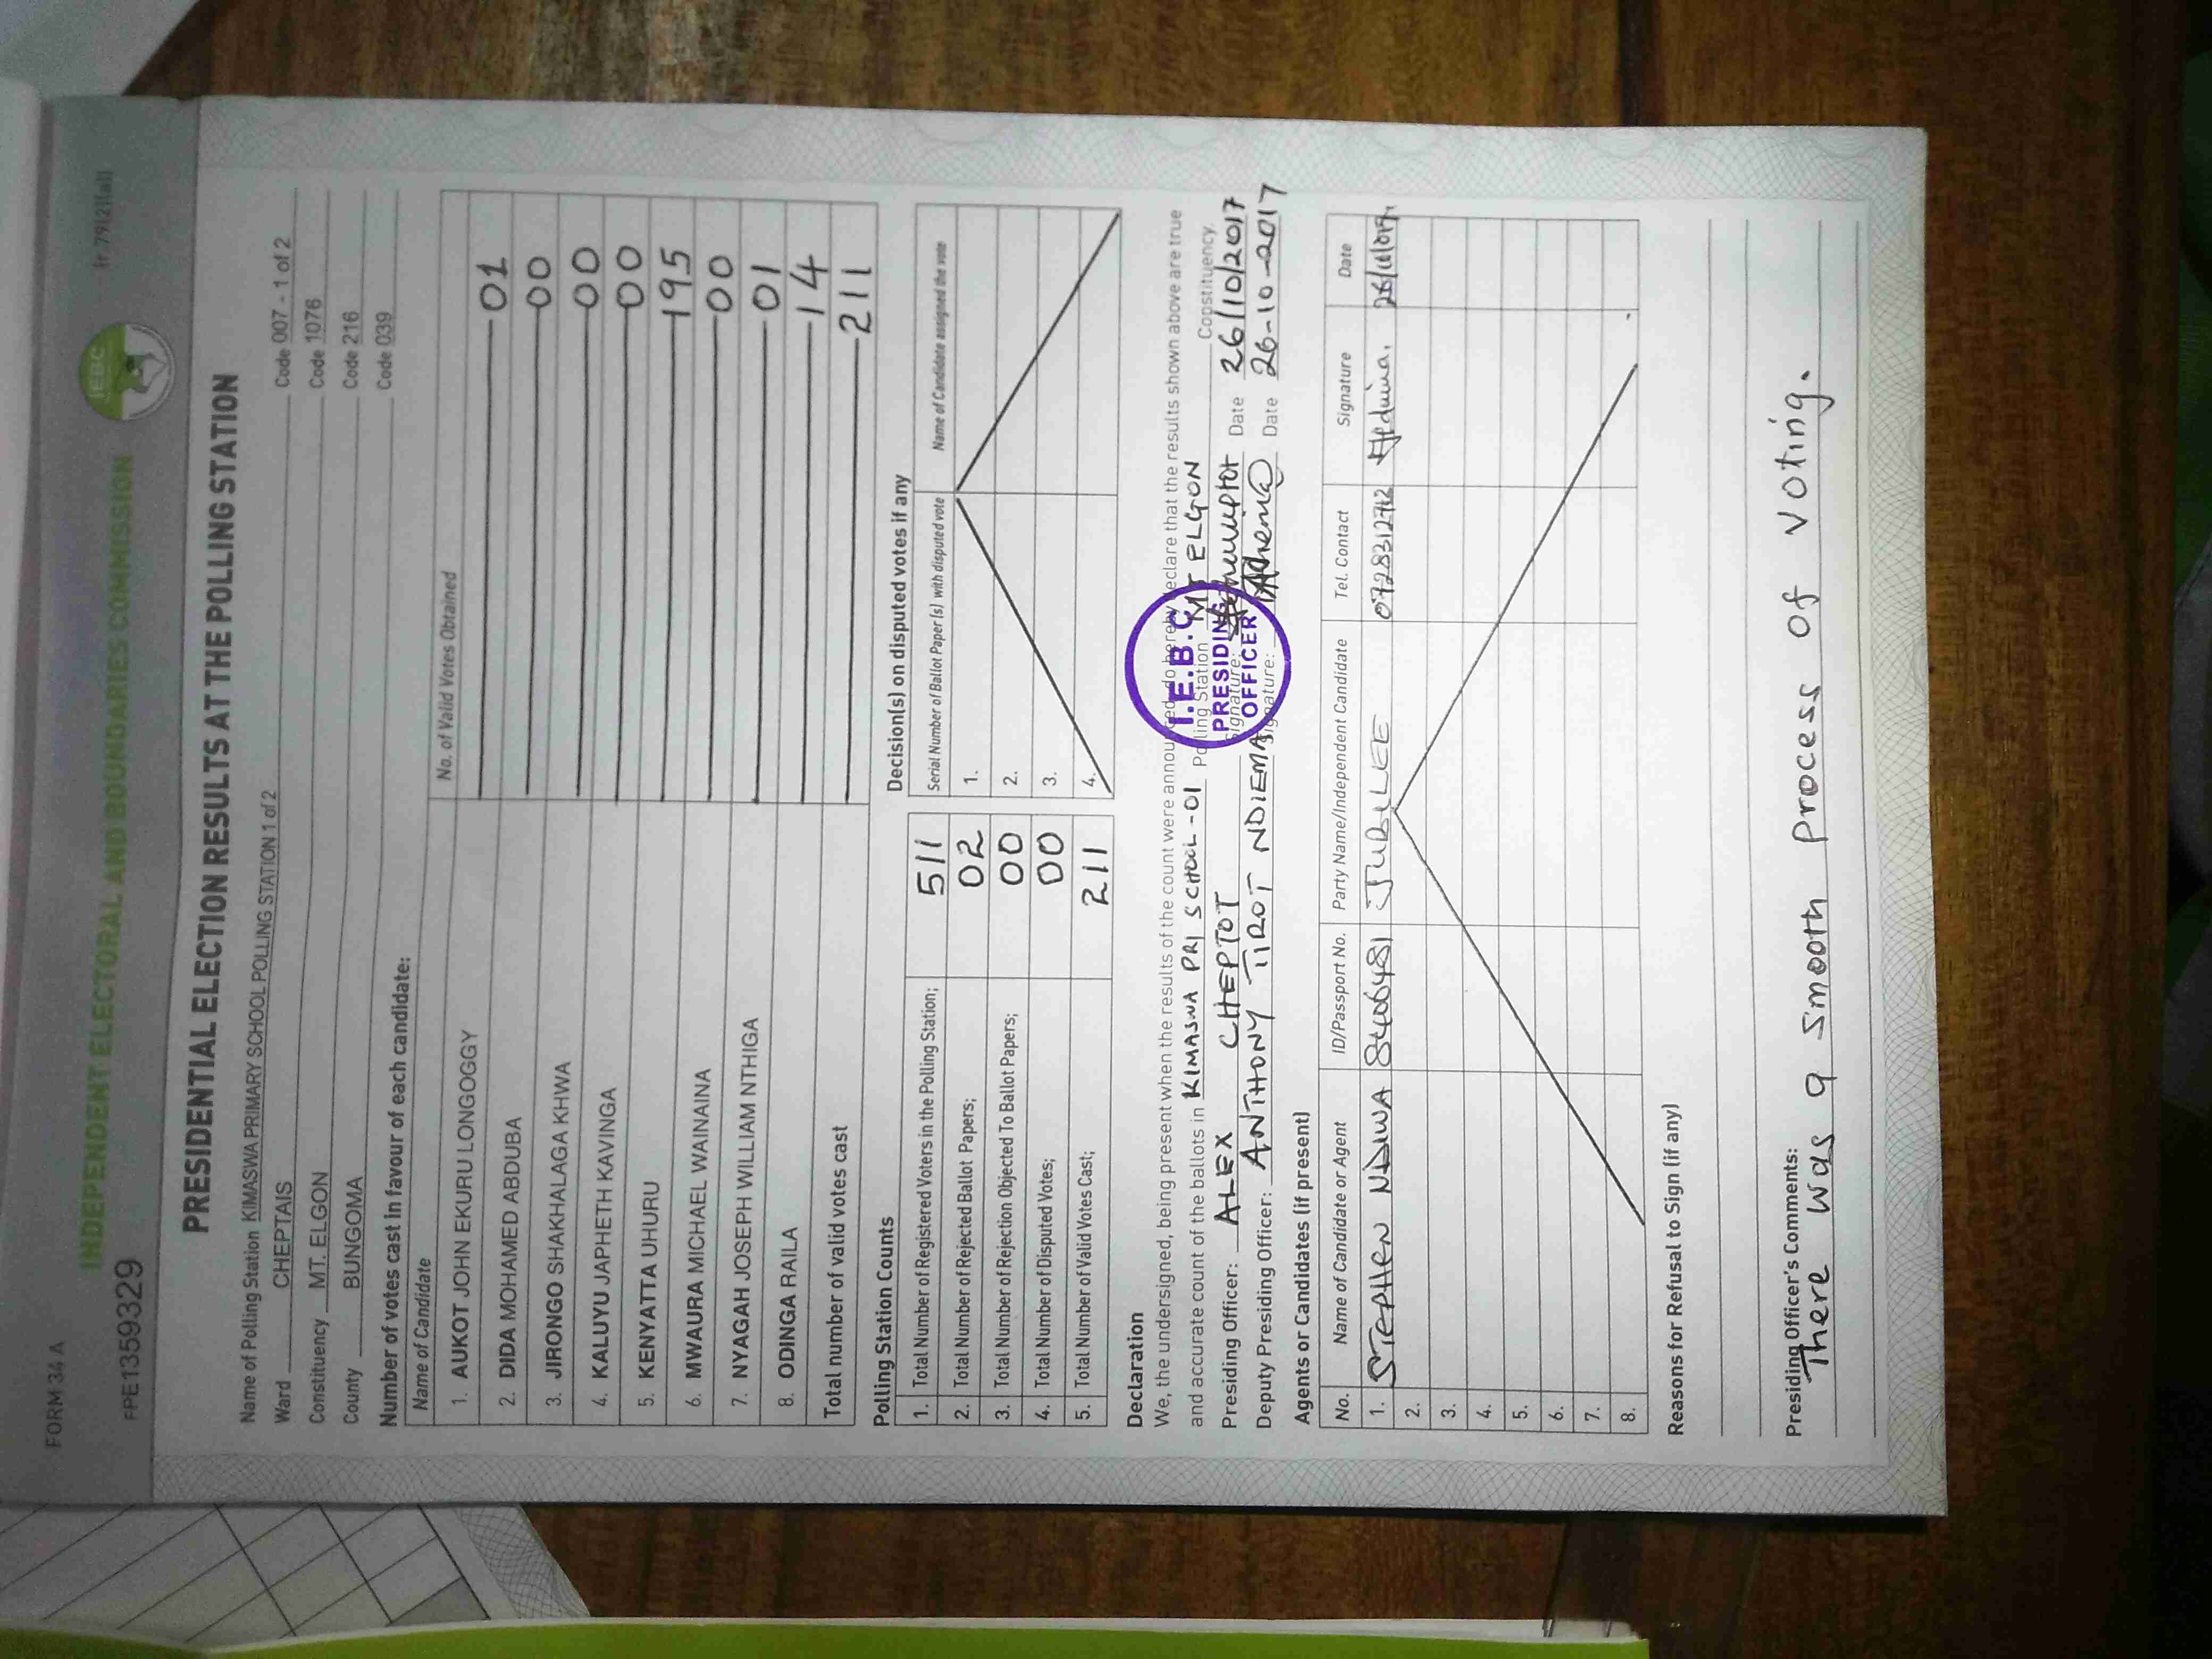 FORM 34 A
INDEPENDENT ELECTORAL AND BOUNDARIES COMMISSION
IEBC
FPE1359329
PRESIDENTIAL ELECTION RESULTS AT THE POLLING STATION
Name of Polling Station KIMASWA PRIMARY SCHOOL POLLING STATION 1 of 2 Code 007 - 1 of 2
Ward CHEPTAIS Code 1076
Constituency MT. ELGON Code 216
County BUNGOMA Code 039
Number of votes cast in favour of each candidate:
Name of Candidate No. of Valid Votes Obtained
1. AUKOT JOHN EKURU LONGOGGY 01
2. DIDA MOHAMED ABDUBA 00
3. JIRONGO SHAKHALAGA KHWA 00
4. KALUYU JAPHETH KAVINGA 00
5. KENYATTA UHURU 195
6. MWAURA MICHAEL WAINAINA 00
7. NYAGAH JOSEPH WILLIAM NTHIGA 01
8. ODINGA RAILA 14
Total number of valid votes cast 211
Polling Station Counts
1. Total Number of Registered Voters in the Polling Station; 511
2. Total Number of Rejected Ballot Papers; 02
3. Total Number of Rejection Objected To Ballot Papers; 00
4. Total Number of Disputed Votes; 00
5. Total Number of Valid Votes Cast; 211
Decision(s) on disputed votes if any
Serial Number of Ballot Paper (s) with disputed vote Name of Candidate assigned the vote
1.
2.
3.
4.
Declaration
We, the undersigned, being present when the results of the count were announced, do hereby declare that the results shown above are true
and accurate count of the ballots in KIMASWA PRI SCHOOL -01 Polling Station MT ELGON Constituency.
Presiding Officer: ALEX CHEPTOT Signature: Date 26/10/2017
Deputy Presiding Officer: ANTHONY TIROT NDIEMA Signature: Date 26-10-2017
I.E.B.C
PRESIDING
OFFICER
Agents or Candidates (if present)
No. Name of Candidate or Agent ID/Passport No. Party Name/Independent Candidate Tel. Contact Signature Date
1. STEPHEN NDIWA 8406481 JUBILEE 0728312712
2.
3.
4.
5.
6.
7.
8.
Reasons for Refusal to Sign (if any)
Presiding Officer's Comments:
There was a smooth process of voting.